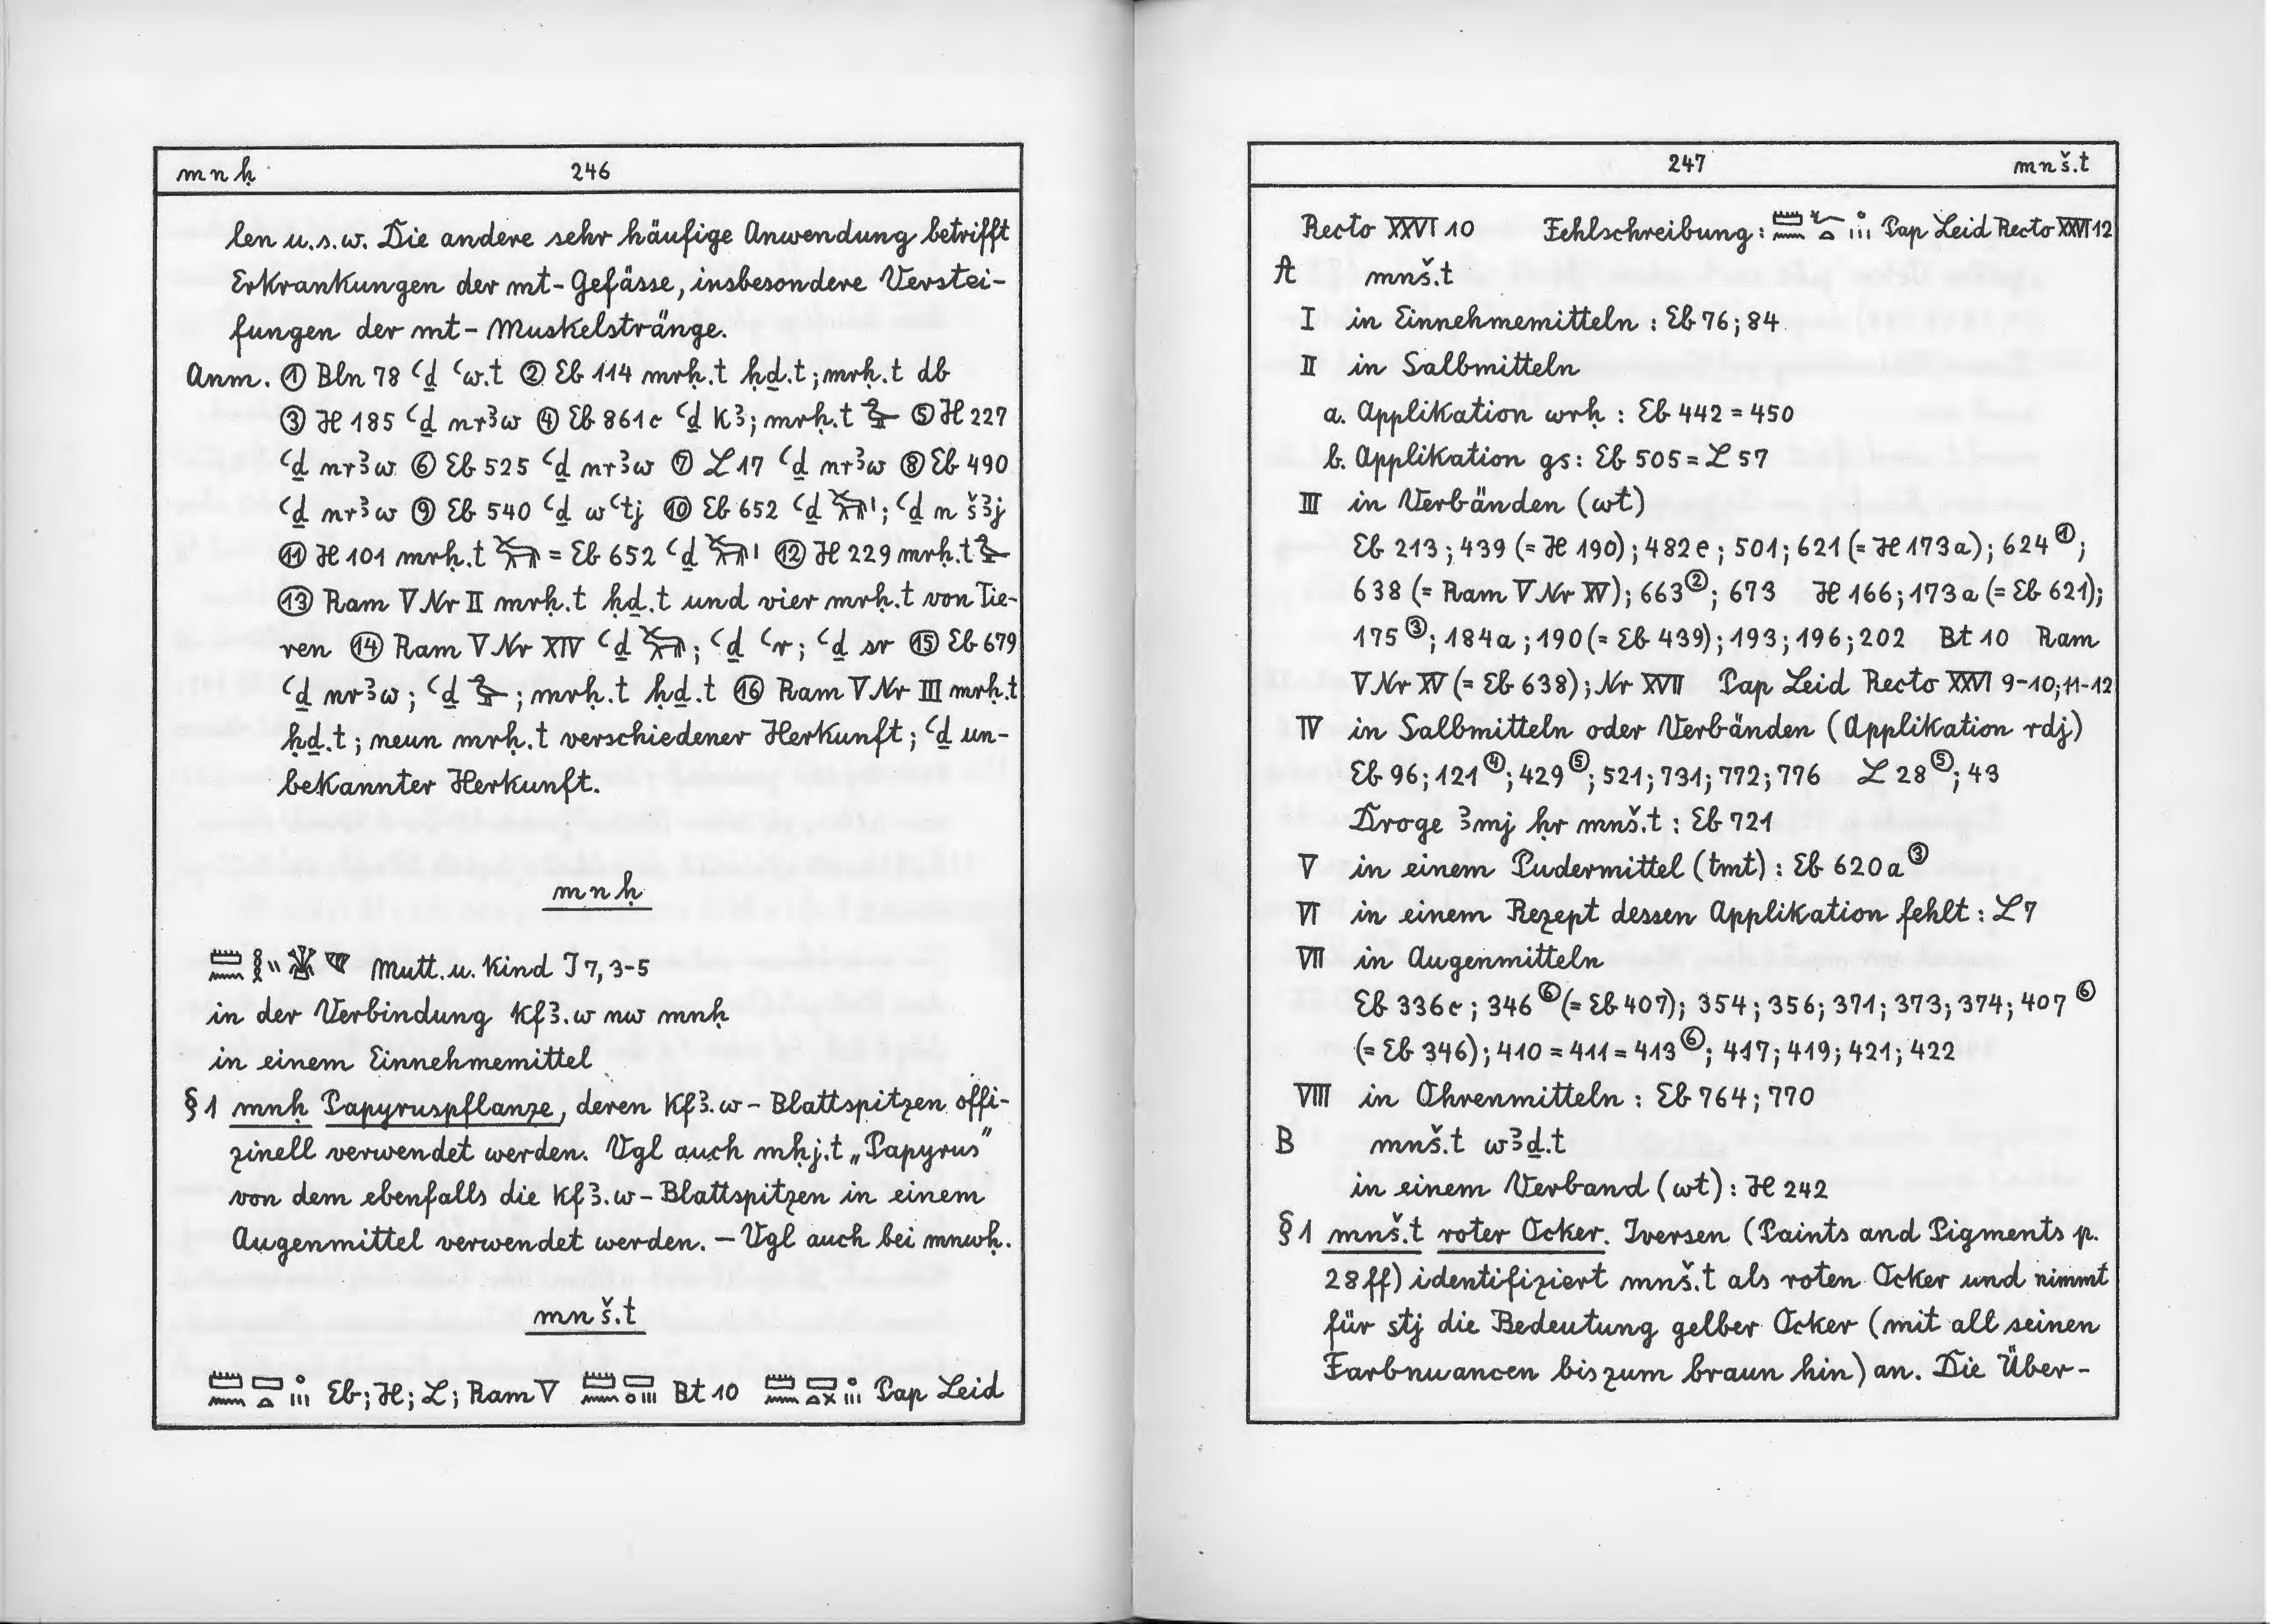 mnḥ 246
len u.s.w. Die andere sehr häufige Anwendung betrifft
Erkrankungen der mt-Gefässe, insbesondere Verstei-
fungen der mt-Muskelstränge.
Anm. ① Bln 78 ꜥḏ ꜥw.t ② Eb 114 mrḥ.t ḥḏ.t; mrḥ.t db
③ H 185 ꜥḏ nrꜣw ④ Eb 861c ꜥḏ kꜣ; mrḥ.t ⑤ H 227
ꜥḏ nrꜣw ⑥ Eb 525 ꜥḏ nrꜣw ⑦ L 17 ꜥḏ nrꜣw ⑧ Eb 490
ꜥḏ nrꜣw ⑨ Eb 540 ꜥḏ wꜥtj ⑩ Eb 652 ꜥḏ ; ꜥḏ n šꜣj
⑪ H 101 mrḥ.t = Eb 652 ꜥḏ ⑫ H 229 mrḥ.t
⑬ Ram V Nr II mrḥ.t ḥḏ.t und vier mrḥ.t von Tie-
ren ⑭ Ram V Nr XIV ꜥḏ ; ꜥḏ ꜥr; ꜥḏ sr ⑮ Eb 679
ꜥḏ nrꜣw; ꜥḏ ; mrḥ.t ḥḏ.t ⑯ Ram V Nr III mrḥ.t
ḥḏ.t; neun mrḥ.t verschiedener Herkunft; ꜥḏ un-
bekannter Herkunft.
mnḥ
Mutt. u. Kind I 7, 3-5
in der Verbindung kfꜣ.w nw mnḥ
in einem Einnehmemittel
§ 1 mnḥ Papyruspflanze, deren kfꜣ.w-Blattspitzen offi-
zinell verwendet werden. Vgl auch mḥj.t „Papyrus"
von dem ebenfalls die kfꜣ.w-Blattspitzen in einem
Augenmittel verwendet werden. – Vgl auch bei mnwḥ.
mnš.t
Eb; H; L; Ram V Bt 10 Pap Leid
247 mnš.t
Recto XXVI 10 Fehlschreibung: Pap Leid Recto XXVI 12
A mnš.t
I in Einnehmemitteln: Eb 76; 84
II in Salbmitteln
a. Applikation wrḥ: Eb 442 = 450
b. Applikation gs: Eb 505 = L 57
III in Verbänden (wt)
Eb 213; 439 (= H 190); 482e; 501; 621 (= H 173a); 624①;
638 (= Ram V Nr XV); 663②; 673 H 166; 173a (= Eb 621);
175③; 184a; 190 (= Eb 439); 193; 196; 202 Bt 10 Ram
V Nr XV (= Eb 638); Nr XVII Pap Leid Recto XXVI 9-10; 11-12
IV in Salbmitteln oder Verbänden (Applikation rdj)
Eb 96; 121④; 429⑤; 521; 731; 772; 776 L 28⑤; 43
Droge ꜣmj ḥr mnš.t: Eb 721
V in einem Pudermittel (tmt): Eb 620a③
VI in einem Rezept dessen Applikation fehlt: L 7
VII in Augenmitteln
Eb 336c; 346⑥ (= Eb 407); 354; 356; 371; 373; 374; 407⑥
(= Eb 346); 410 = 411 = 413⑥; 417; 419; 421; 422
VIII in Ohrenmitteln: Eb 764; 770
B mnš.t wꜣḏ.t
in einem Verband (wt): H 242
§ 1 mnš.t roter Ocker. Iversen (Paints and Pigments p.
28ff) identifiziert mnš.t als roten Ocker und nimmt
für stj die Bedeutung gelber Ocker (mit all seinen
Farbnuancen bis zum braun hin) an. Die Über-